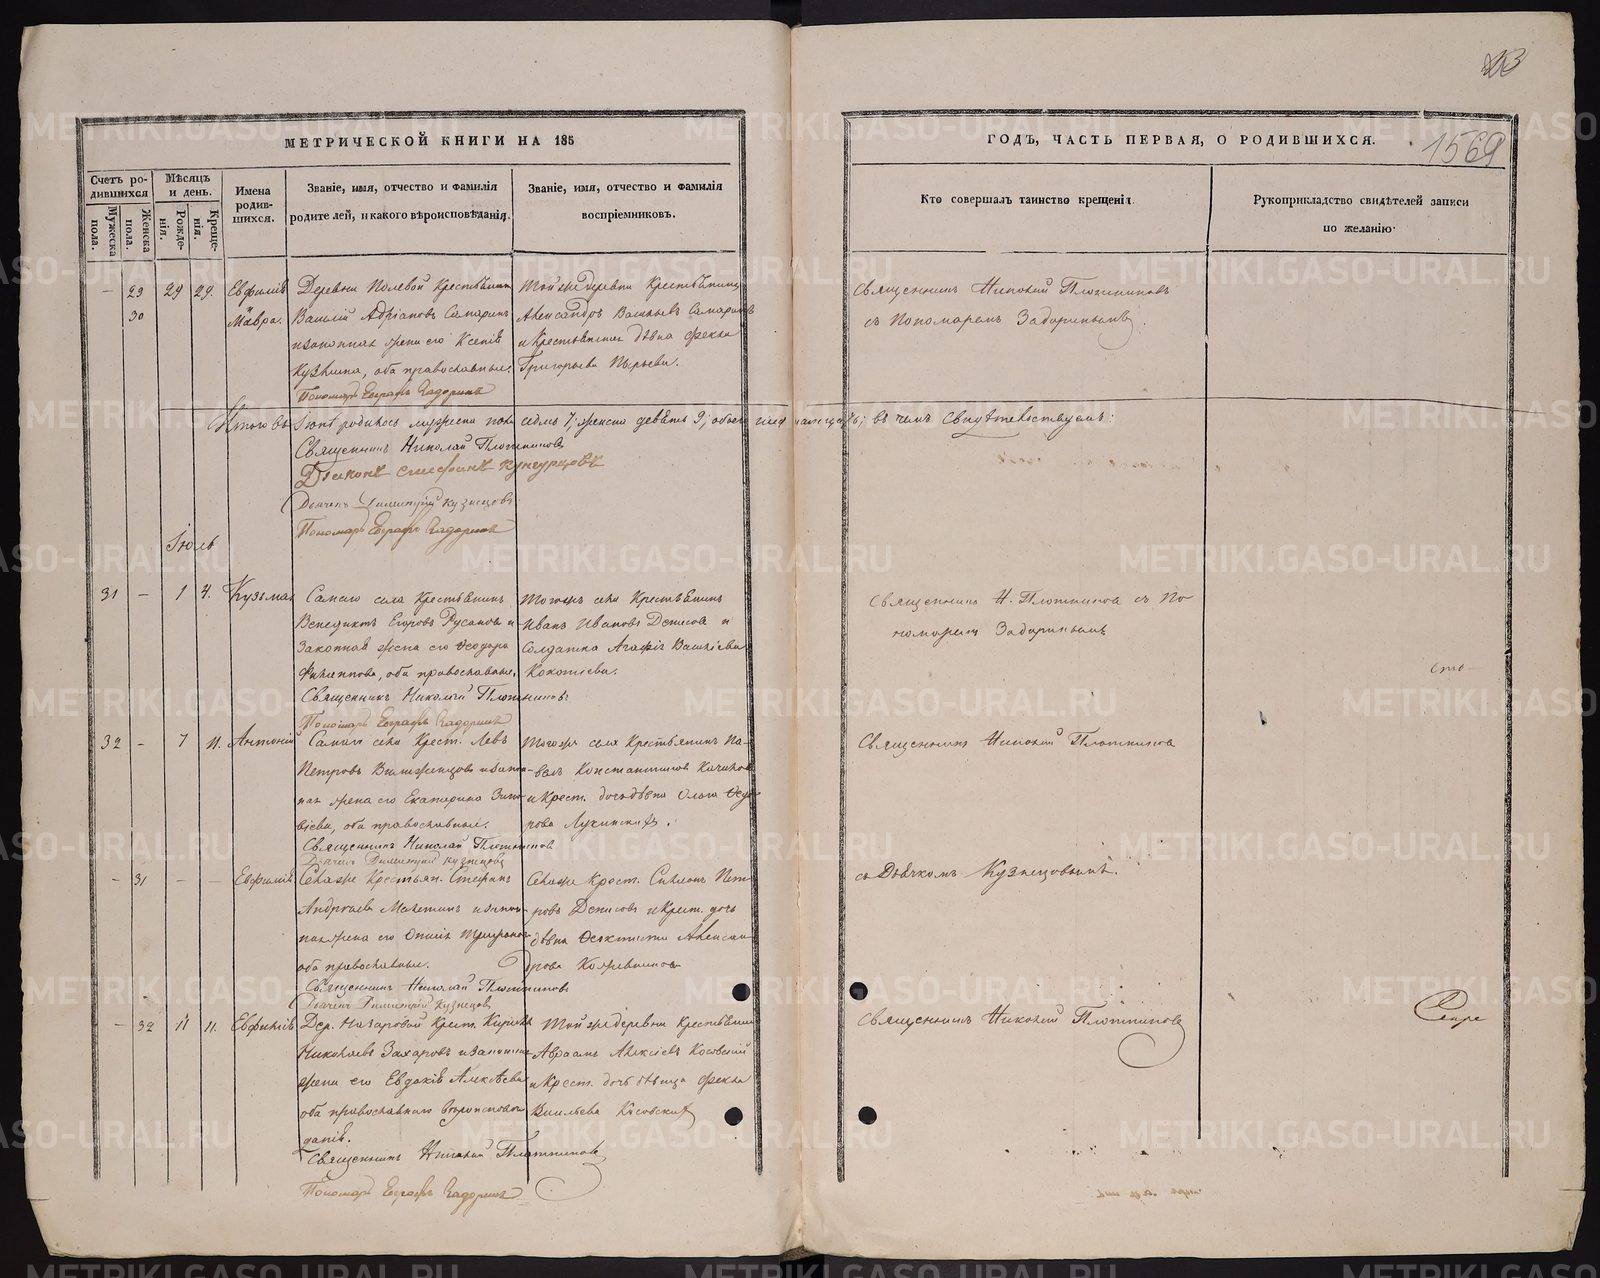 23
МЕТРИЧЕСКОЙ КНИГИ НА 185
ГОДЪ, ЧАСТЬ ПЕРВАЯ, О РОДИВШИХСЯ.
1569
Счетъ родившихся
Мужеска пола.
Женска пола.
Мѣсяцъ и день.
Рожденія.
Крещенія.
Имена родившихся.
Званіе, имя, отчество и фамилія
родителей, и какого вѣроисповѣданія.
Званіе, имя, отчество и фамилія
воспріемниковъ.
Кто совершалъ таинство крещенія.
Рукоприкладство свидѣтелей записи
по желанію.
— 29 29 29. Евфимія
30 и Мавра.
Деревни Полевой Крестьянинъ
Василій Адріановъ Самаринъ
и законная жена его Ксенія
Кузьмина, оба православные.
Пономарь Евграфъ Задоринъ
Той же деревни Крестьянинъ
Александръ Васильевъ Самаринъ
и Крестьянская дѣвка Фекла
Григорьева
Священникъ Николай Плотниковъ
съ Пономаремъ Задоринымъ.
Итого въ Іюнѣ родилось мужеска пола семь 7; женска девять 9; обоего 16; въ чемъ Свидѣтельствуемъ:
Священникъ Николай Плотниковъ
Діаконъ Стефанъ Кунгурцовъ
Дьячекъ Димитрій Кузнецовъ
Пономарь Евграфъ Задоринъ
Іюль
31 — 1 4. Кузьма
Самаго села Крестьянинъ
Венедиктъ Егоровъ Русановъ и
Законная жена его Ѳеодора
Филиппова, оба православные.
Священникъ Николай Плотниковъ
Пономарь Евграфъ Задоринъ
Тогожъ села Крестьянинъ
Иванъ Ивановъ Денисовъ и
Солдатка Агафія Васильева
Священникъ Н. Плотниковъ съ По
номаремъ Задоринымъ
32 — 7 11. Антоній
Самаго села Крест. Левъ
Петровъ и закон
ная жена его Екатерина Зино
віева, оба православные.
Священникъ Николай Плотниковъ
Дьячекъ Димитрій Кузнецовъ
Тогожъ села Крестьянинъ Па-
велъ Константиновъ
и Крест. дочь дѣвка Ольга Ѳедо
рова
Священникъ Николай Плотниковъ
— 31 — — Евфимія
Села же Крестьян. Стефанъ
Андреевъ и закон
ная жена его
оба православные.
Священникъ Николай Плотниковъ
Дьячекъ Димитрій Кузнецовъ
Села же Крест. Пет
ровъ Денисовъ и Крест. дочь
дѣвка Александрова
Кожевникова
съ Дьячкомъ Кузнецовымъ.
— 32 11 11. Евфимія
Дер. Назаровой Крест. Кириллъ
Николаевъ Захаровъ и законная
жена его Евдокія Алексѣева
оба православнаго вѣроисповѣ
данія.
Священникъ Николай Плотниковъ
Пономарь Евграфъ Задоринъ
Той же деревни Крестьянинъ
Авраамъ Алексѣевъ Косовскій
и Крест. дочь дѣвица Фекла
Васильева Косовская
Священникъ Николай Плотниковъ
METRIKI.GASO-URAL.RU